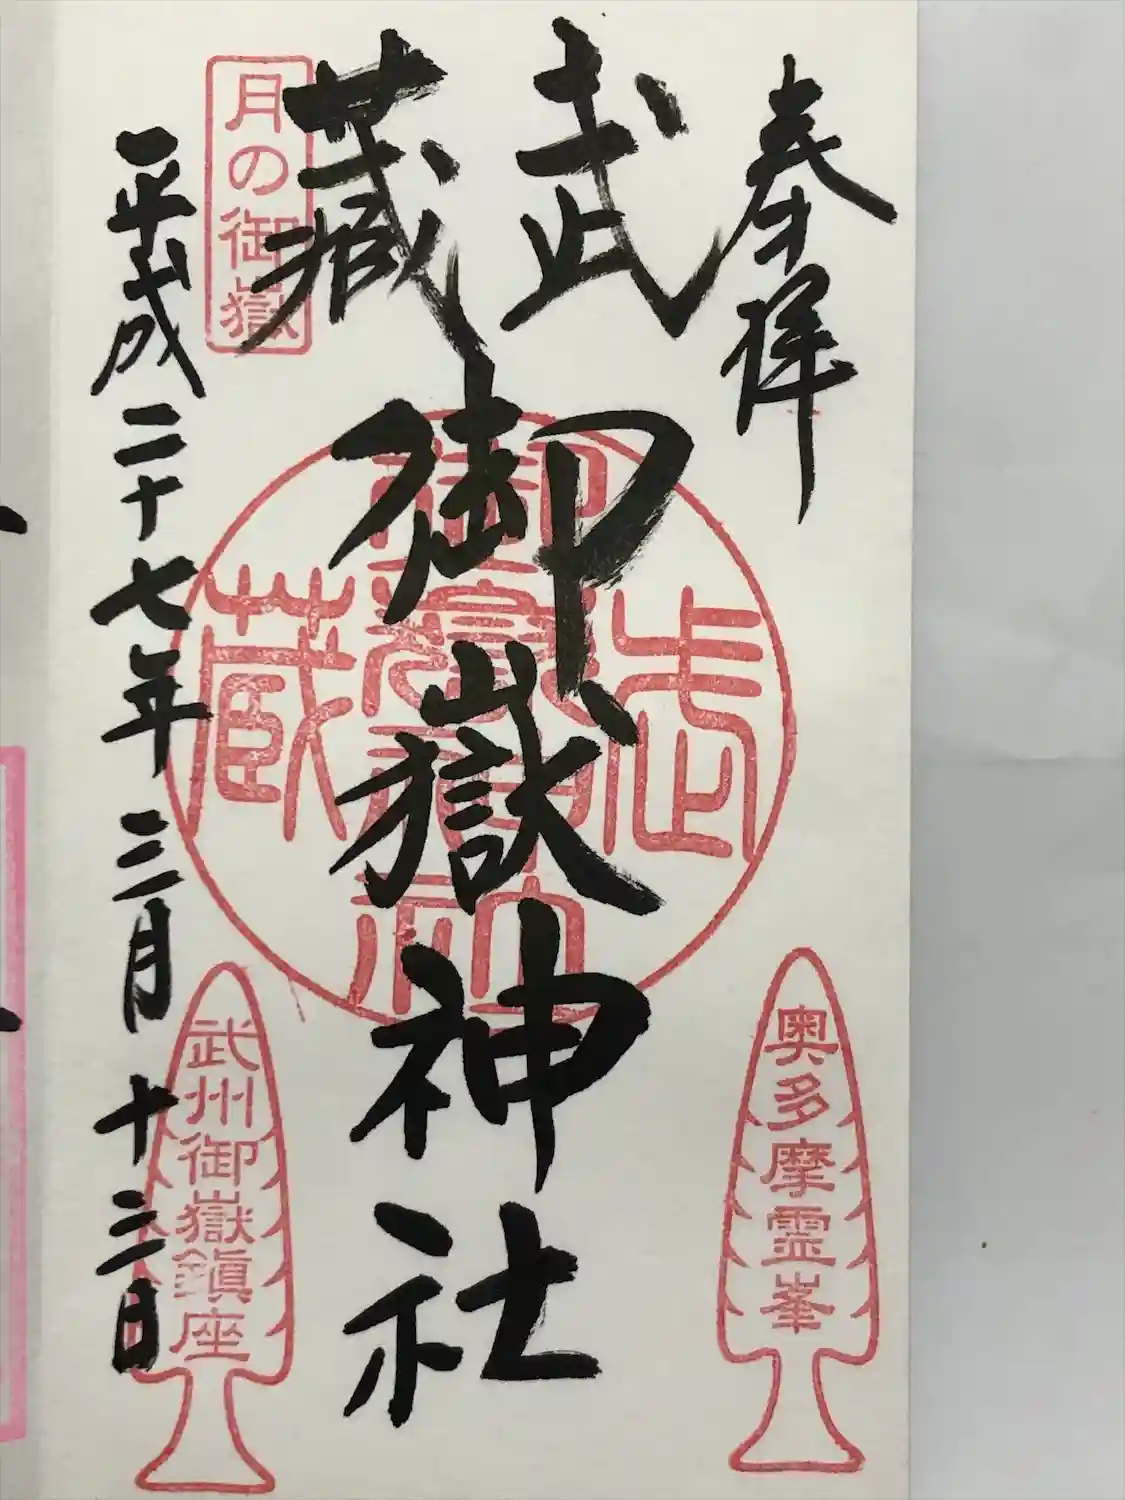 奉拝
奥多摩霊峯
武蔵
御嶽神社
武蔵御嶽神社
月の御嶽
武州御嶽鎮座
平成二十七年三月十三日